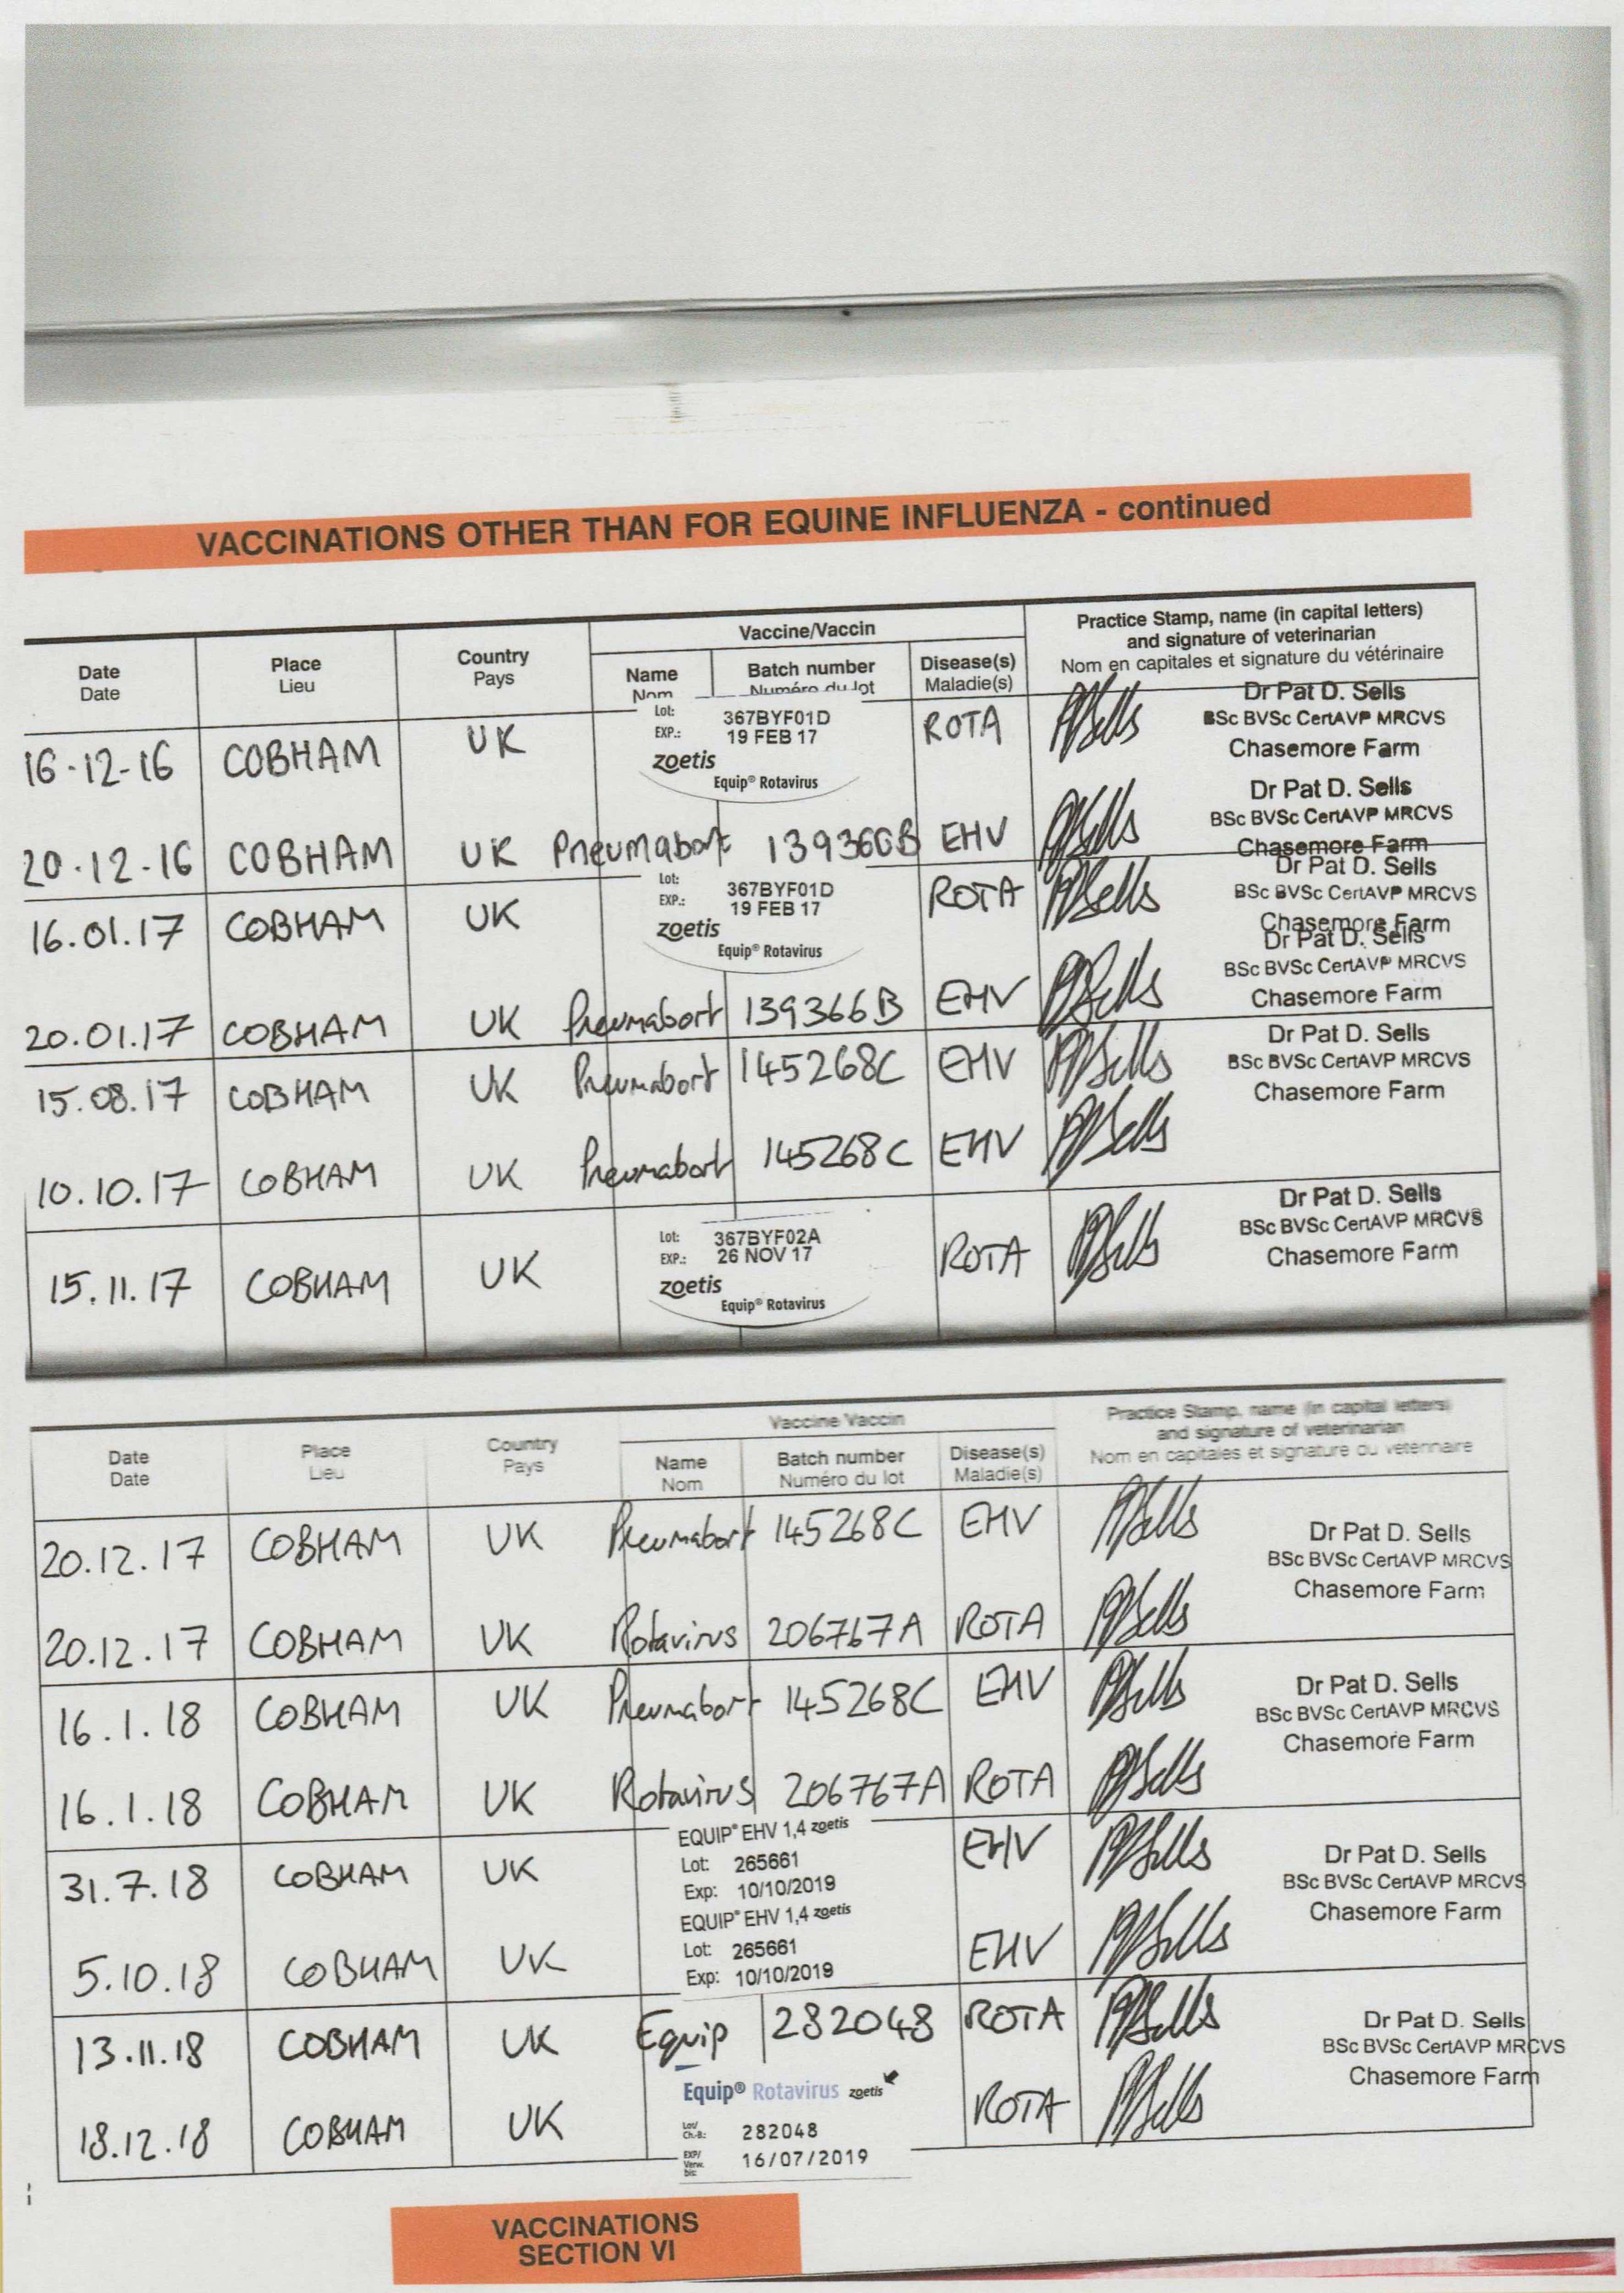 VACCINATIONS OTHER THAN FOR EQUINE INFLUENZA - continued
Date
Date
Place
Lieu
Country
Pays
Vaccine/Vaccin
Name
Nom
Batch number
Numéro du lot
Disease(s)
Maladie(s)
Practice Stamp, name (in capital letters)
and signature of veterinarian
Nom en capitales et signature du vétérinaire
16-12-16 COBHAM UK
Lot: 367BYF01D
EXP.: 19 FEB 17
zoetis
Equip® Rotavirus
ROTA
Dr Pat D. Sells
BSc BVSc CertAVP MRCVS
Chasemore Farm
20.12.16 COBHAM UK Pneumabort 139366B EHV
Dr Pat D. Sells
BSc BVSc CertAVP MRCVS
Chasemore Farm
16.01.17 COBHAM UK
Lot: 367BYF01D
EXP.: 19 FEB 17
zoetis
Equip® Rotavirus
ROTA
Dr Pat D. Sells
BSc BVSc CertAVP MRCVS
Chasemore Farm
20.01.17 COBHAM UK Pneumabort 139366B EHV
Dr Pat D. Sells
BSc BVSc CertAVP MRCVS
Chasemore Farm
15.08.17 COBHAM UK Pneumabort 145268C EHV
Dr Pat D. Sells
BSc BVSc CertAVP MRCVS
Chasemore Farm
10.10.17 COBHAM UK Pneumabort 145268C EHV
15.11.17 COBHAM UK
Lot: 367BYF02A
EXP.: 26 NOV 17
zoetis
Equip® Rotavirus
ROTA
Dr Pat D. Sells
BSc BVSc CertAVP MRCVS
Chasemore Farm
Date
Date
Place
Lieu
Country
Pays
Vaccine Vaccin
Name
Nom
Batch number
Numéro du lot
Disease(s)
Maladie(s)
Practice Stamp, name (in capital letters)
and signature of veterinarian
Nom en capitales et signature du vétérinaire
20.12.17 COBHAM UK Pneumabort 145268C EHV
Dr Pat D. Sells
BSc BVSc CertAVP MRCVS
Chasemore Farm
20.12.17 COBHAM UK Rotavirus 206767A ROTA
16.1.18 COBHAM UK Pneumabort 145268C EHV
Dr Pat D. Sells
BSc BVSc CertAVP MRCVS
Chasemore Farm
16.1.18 COBHAM UK Rotavirus 206767A ROTA
31.7.18 COBHAM UK
EQUIP® EHV 1,4 zoetis
Lot: 265661
Exp: 10/10/2019
EHV
Dr Pat D. Sells
BSc BVSc CertAVP MRCVS
Chasemore Farm
5.10.18 COBHAM UK
EQUIP® EHV 1,4 zoetis
Lot: 265661
Exp: 10/10/2019
EHV
13.11.18 COBHAM UK Equip 282048 ROTA
Dr Pat D. Sells
BSc BVSc CertAVP MRCVS
Chasemore Farm
18.12.18 COBHAM UK
Equip® Rotavirus zoetis
Lot/
Ch.-B.: 282048
EXP/
Verw.
bis: 16/07/2019
ROTA
VACCINATIONS
SECTION VI